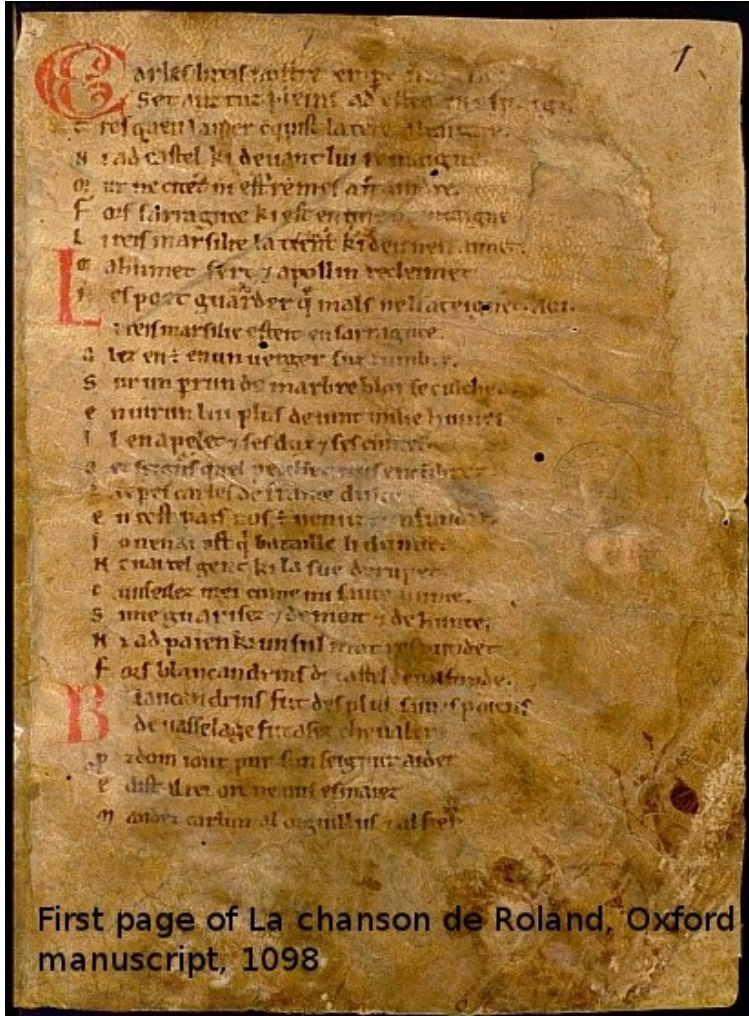 Carles li reis nostre empe
Set anz tuz pleins ad estet en espaigne
T resquen la mer cq̃uist la tere altaigne.
N i ad castel ki devant lui remaigne.
M ur ne citet ni est remes a fraindre.
F ors sarraguce ki est en une muntaigne
L i reis marsilie la tient ki deu nen aimet.
M ahumet sert ⁊ apollin recleimet
N es poet guarder q̃ mals ne li ateignet. aoi.
L i reis marsilie esteit en sarraguce.
A lez en est en un verger suz lumbre.
S ur un perrun de marbre bloi se culchet
E nvirun lui plus de vint milie humes
I l en apelet ⁊ ses dux ⁊ ses cuntes
O ez seignurs quel pecchet nus encumbret
L i empes carles de france dulce
E n cest pais nos est venuz cunfundre
I o nen ai ost q̃ bataille li dunne.
N ai tel gent ki la sue derumpet
C unseilez mei cume mi saive hume.
S i me guarisez ⁊ de mort ⁊ de hunte.
N i ad paien ki un sul mot respundet
F ors blancandrins de castel de valfunde.
Blancandrins fut des plus saives paiens
de vasselage fut asez chevaler
P rodom i out pur sun seignur aider
E dist al rei or ne vus esmaiez
M andez carlun al orguillus ⁊ al fier
1
First page of La chanson de Roland, Oxford
manuscript, 1098